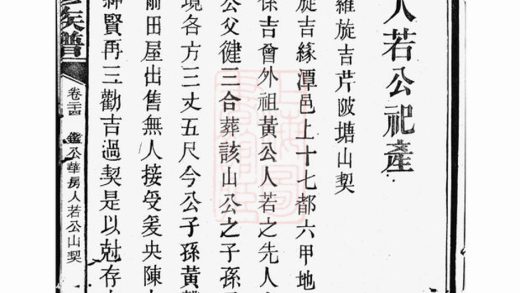 人若公祀產
羅旋吉芹陂塘山契
旋吉緣潭邑上十七都六甲地
保吉曾外祖黃公人若之先人
公父健三合葬該山公之子孫
境各方三丈五尺今公子孫黃
前田屋出售無人接受爰央陳
紳賢再三勸吉過契是以兙存
族譜
卷三十四
鑑公華房人若公山契